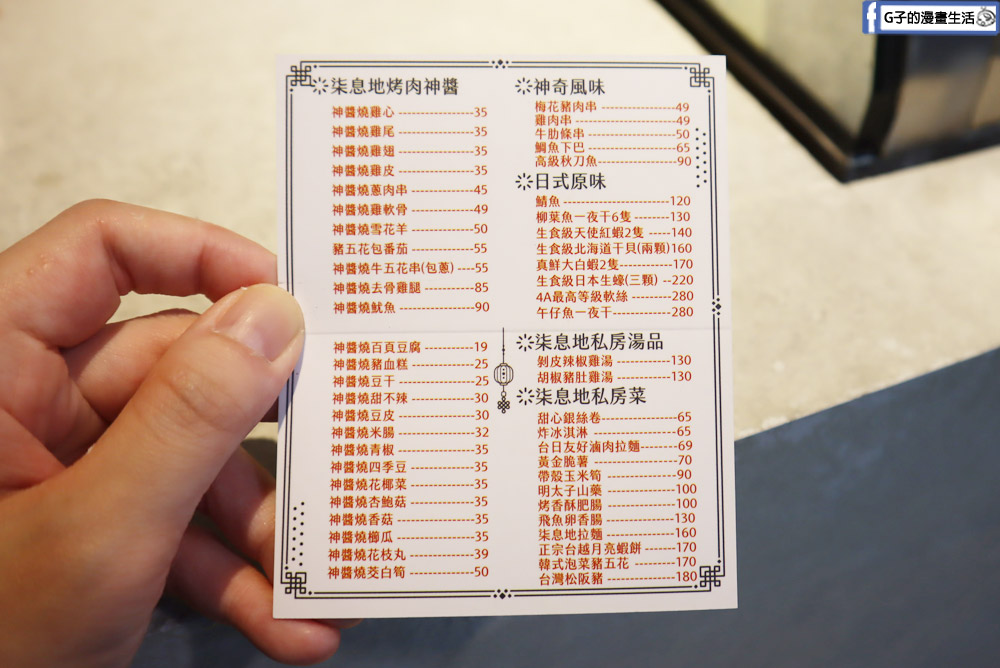 G子的漫畫生活
柒息地烤肉神醬
神醬燒雞心 ---------------35
神醬燒雞尾 ---------------35
神醬燒雞翅 ---------------35
神醬燒雞皮 ---------------35
神醬燒蔥肉串 -------------45
神醬燒雞軟骨 -------------49
神醬燒雪花羊 -------------50
豬五花包番茄 -------------55
神醬燒牛五花串(包蔥) ----55
神醬燒去骨雞腿 -----------85
神醬燒魷魚 ---------------90
神醬燒百頁豆腐 -----------19
神醬燒豬血糕 -------------25
神醬燒豆干 ---------------25
神醬燒甜不辣 -------------30
神醬燒豆皮 ---------------30
神醬燒米腸 ---------------32
神醬燒青椒 ---------------35
神醬燒四季豆 -------------35
神醬燒花椰菜 -------------35
神醬燒杏鮑菇 -------------35
神醬燒香菇 ---------------35
神醬燒櫛瓜 ---------------35
神醬燒花枝丸 -------------39
神醬燒茭白筍 -------------50
神奇風味
梅花豬肉串 ---------------49
雞肉串 -------------------49
牛肋條串 -----------------50
鯛魚下巴 -----------------65
高級秋刀魚----------------90
日式原味
鯖魚 ---------------------120
柳葉魚一夜干6隻 -------130
生食級天使紅蝦2隻 -----140
生食級北海道干貝(兩顆)160
真鮮大白蝦2隻----------170
生食級日本生蠔(三顆) --220
4A最高等級軟絲 --------280
午仔魚一夜干-----------280
柒息地私房湯品
剝皮辣椒雞湯 ----------130
胡椒豬肚雞湯 ----------130
柒息地私房菜
甜心銀絲卷---------------65
炸冰淇淋 ----------------65
台日友好滷肉拉麵-------69
黃金脆薯 ----------------70
帶殼玉米筍 -------------90
明太子山藥 ------------100
烤香酥肥腸 ------------100
飛魚卵香腸 ------------130
柒息地拉麵 ------------160
正宗台越月亮蝦餅 ------170
韓式泡菜豬五花 --------170
台灣松阪豬 ------------180